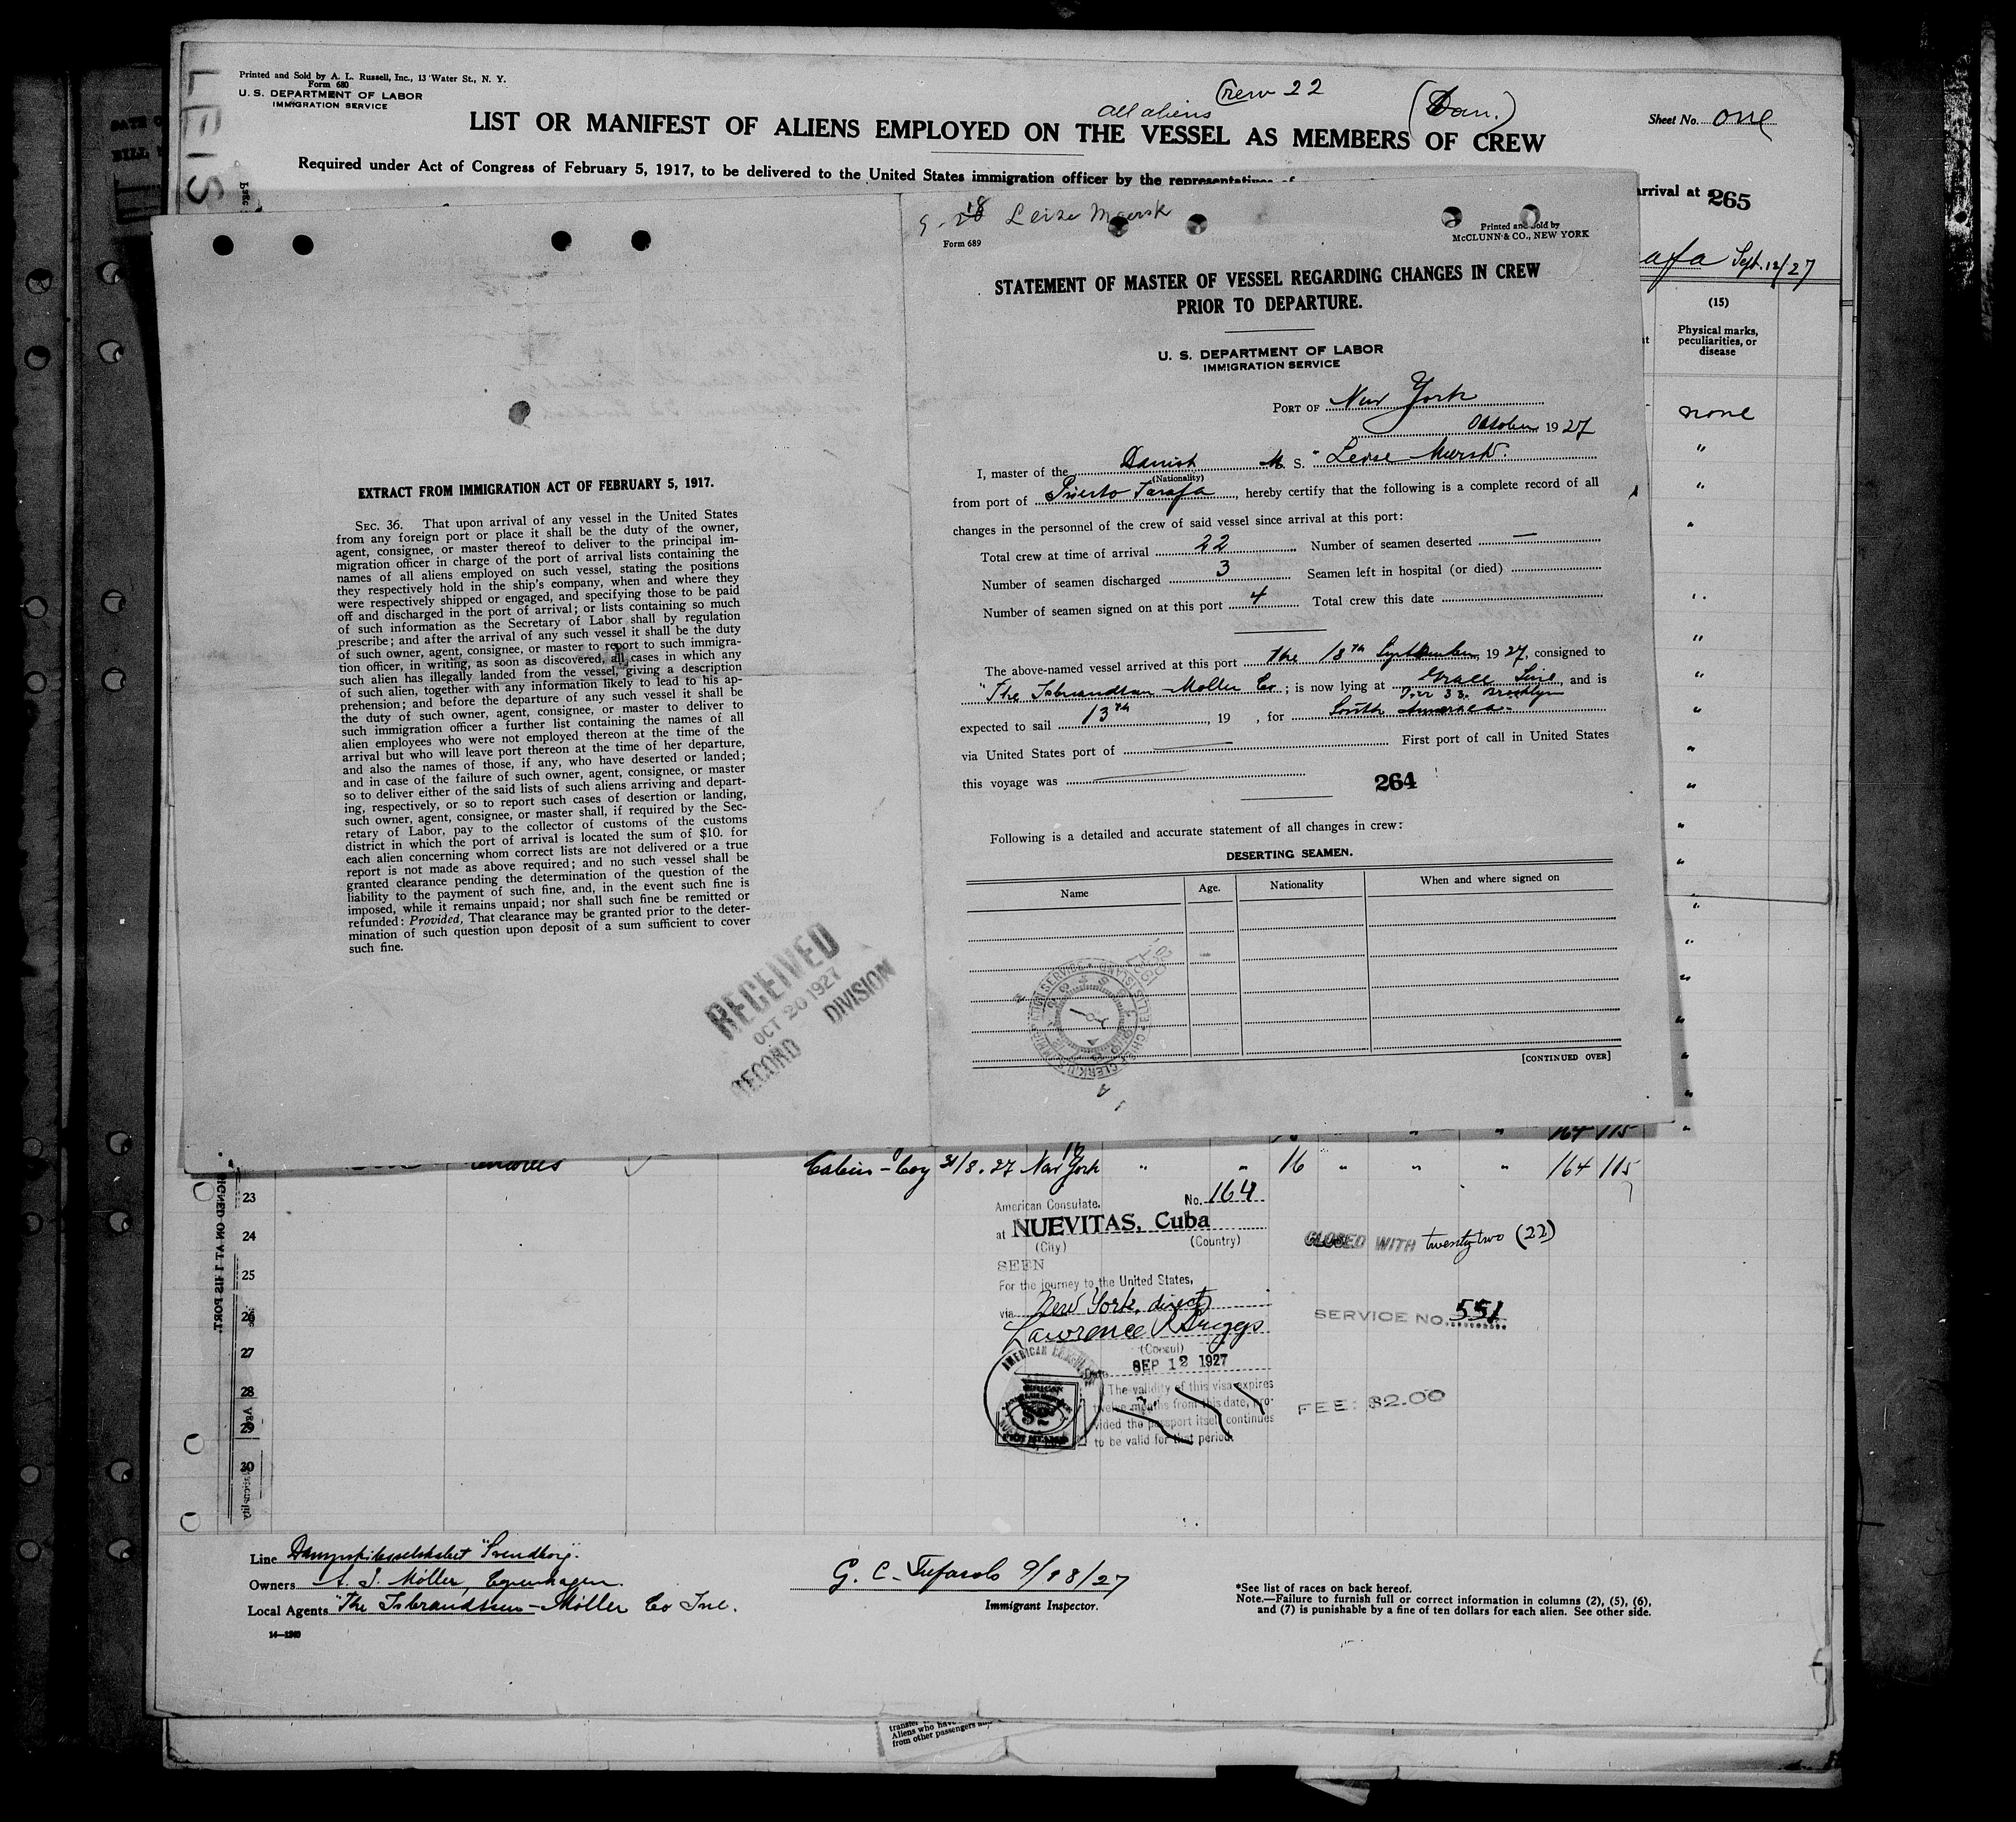 Printed and Sold by A. L. Russell, Inc., 13 Water St., N. Y.
Form 680
U. S. DEPARTMENT OF LABOR
IMMIGRATION SERVICE
all aliens
Crew 22
(Dan.)
Sheet No. one
LIST OR MANIFEST OF ALIENS EMPLOYED ON THE VESSEL AS MEMBERS OF CREW
Required under Act of Congress of February 5, 1917, to be delivered to the United States immigration officer by the representatives of
arrival at
265
afa Sept. 12/27
(15)
Physical marks,
peculiarities, or
disease
none
EXTRACT FROM IMMIGRATION ACT OF FEBRUARY 5, 1917.
SEC. 36. That upon arrival of any vessel in the United States
from any foreign port or place it shall be the duty of the owner,
agent, consignee, or master thereof to deliver to the principal im-
migration officer in charge of the port of arrival lists containing the
names of all aliens employed on such vessel, stating the positions
they respectively hold in the ship's company, when and where they
were respectively shipped or engaged, and specifying those to be paid
off and discharged in the port of arrival; or lists containing so much
of such information as the Secretary of Labor shall by regulation
prescribe; and after the arrival of any such vessel it shall be the duty
of such owner, agent, consignee, or master to report to such immigra-
tion officer, in writing, as soon as discovered, all cases in which any
such alien has illegally landed from the vessel, giving a description
of such alien, together with any information likely to lead to his ap-
prehension; and before the departure of any such vessel it shall be
the duty of such owner, agent, consignee, or master to deliver to
such immigration officer a further list containing the names of all
alien employees who were not employed thereon at the time of the
arrival but who will leave port thereon at the time of her departure,
and also the names of those, if any, who have deserted or landed;
and in case of the failure of such owner, agent, consignee, or master
so to deliver either of the said lists of such aliens arriving and depart-
ing, respectively, or so to report such cases of desertion or landing,
such owner, agent, consignee, or master shall, if required by the Sec-
retary of Labor, pay to the collector of customs of the customs
district in which the port of arrival is located the sum of $10. for
each alien concerning whom correct lists are not delivered or a true
report is not made as above required; and no such vessel shall be
granted clearance pending the determination of the question of the
liability to the payment of such fine, and, in the event such fine is
imposed, while it remains unpaid; nor shall such fine be remitted or
refunded: Provided, That clearance may be granted prior to the deter-
mination of such question upon deposit of a sum sufficient to cover
such fine.
RECEIVED
OCT 20 1927
RECORD DIVISION
18 Leise Maersk
Form 689
Printed and Sold by
McCLUNN & CO., NEW YORK
STATEMENT OF MASTER OF VESSEL REGARDING CHANGES IN CREW
PRIOR TO DEPARTURE.
U. S. DEPARTMENT OF LABOR
IMMIGRATION SERVICE
PORT OF New York
October 1927
I, master of the Danish M. S. "Leise Mærsk".
(Nationality)
from port of Puerto Tarafa, hereby certify that the following is a complete record of all
changes in the personnel of the crew of said vessel since arrival at this port:
Total crew at time of arrival 22 Number of seamen deserted —
Number of seamen discharged 3 Seamen left in hospital (or died)
Number of seamen signed on at this port 4 Total crew this date
The above-named vessel arrived at this port the 18th September, 1927, consigned to
"The Isbrandtsen-Moller Co.; is now lying at Grace Line Pier 33 Brooklyn, and is
expected to sail 13th, 19 , for South America.
via United States port of — First port of call in United States
this voyage was —
264
Following is a detailed and accurate statement of all changes in crew:
DESERTING SEAMEN.
Name Age. Nationality When and where signed on
[CONTINUED OVER]
Cabin-boy 31/8.27 New York " " 16 " " " 164 115
23
24
25
26
27
28
29
30
American Consulate. No. 164
at NUEVITAS, Cuba
(City) (Country)
SEEN
For the journey to the United States,
via New York, direct
Lawrence Briggs
(Consul)
Date SEP 12 1927
The validity of this visa expires
twelve months from this date, pro-
vided the passport itself continues
to be valid for that period.
CLOSED WITH twenty two (22)
SERVICE NO. 551
FEE: $2.00
Line Dampskibsselskabet "Svendborg".
Owners A. P. Möller, Copenhagen.
Local Agents "The Isbrandtsen-Möller Co Inc.
14—1240
Immigrant Inspector.
*See list of races on back hereof.
Note.—Failure to furnish full or correct information in columns (2), (5), (6),
and (7) is punishable by a fine of ten dollars for each alien. See other side.
Aliens who have
from other passengers